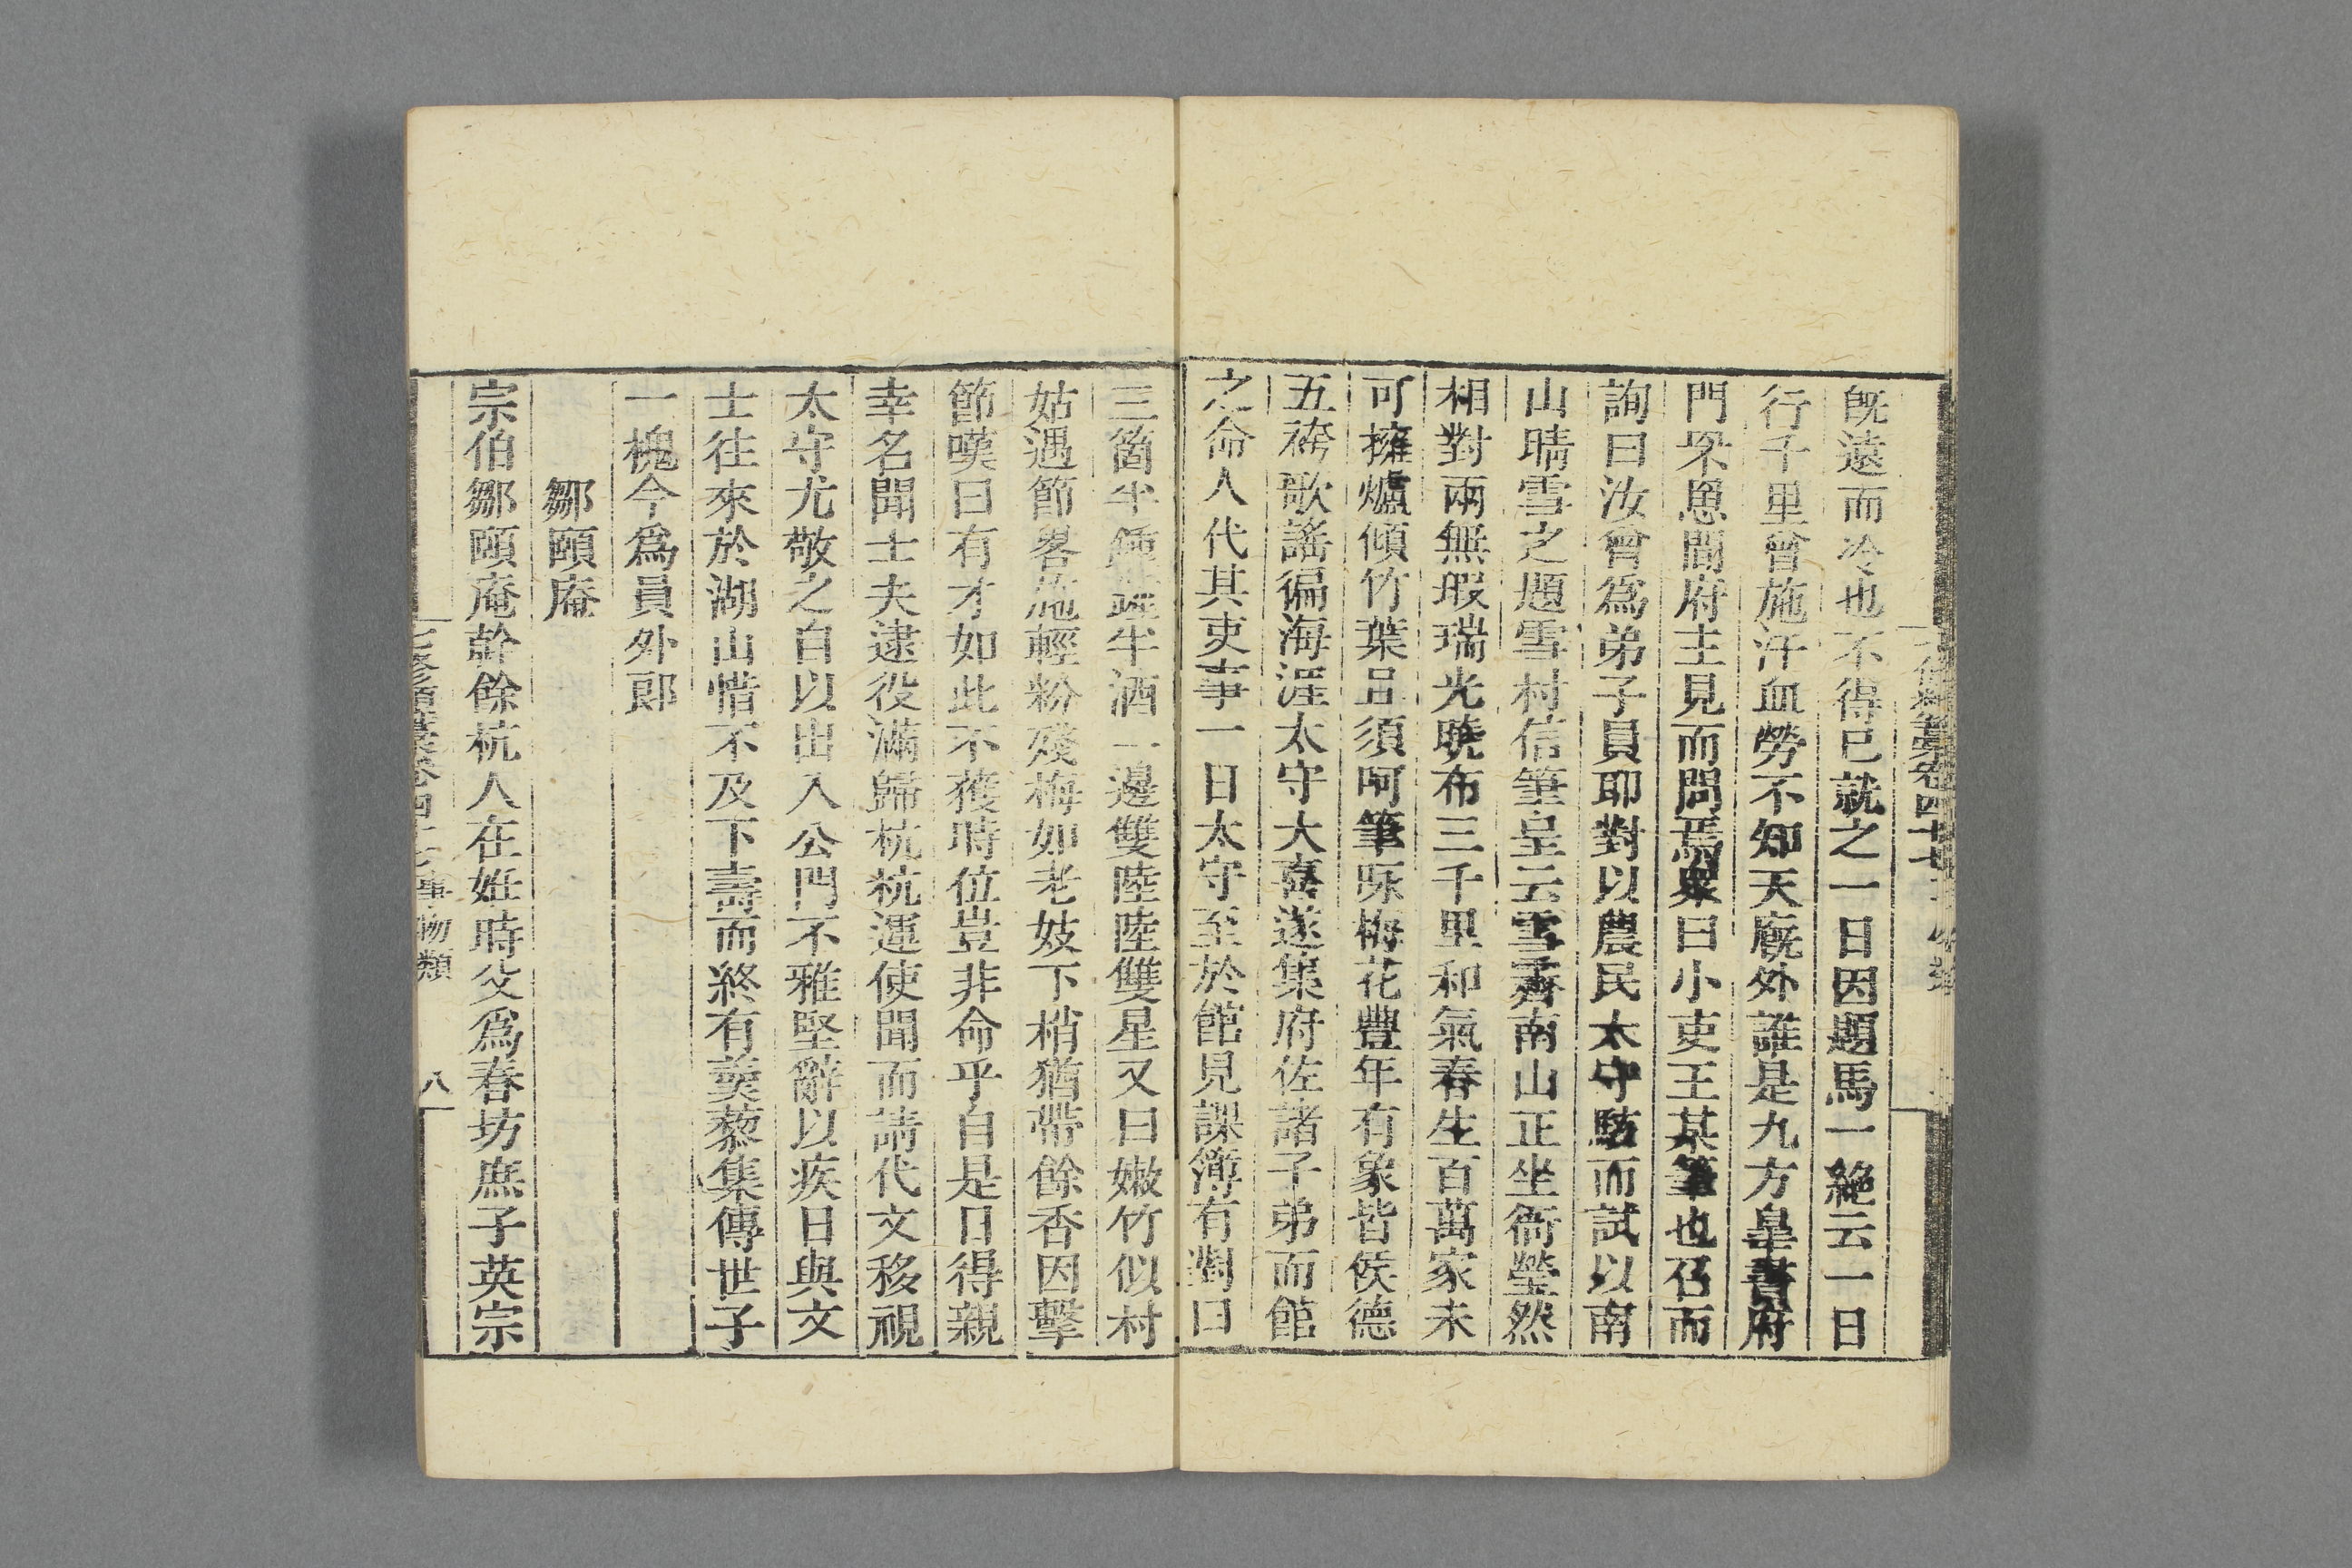 既遠而冷也不得已就之一日因題馬一絕云一日
行千里曾施汗血勞不知天廐外誰是九方皐書府
門眾愚聞府主見而問焉衆曰小吏王某筆也召而
詢曰汝曾爲弟子員耶對以農民太守駭而試以南
山晴雪之題雪村信筆呈云雪霽南山正坐衙瑩然
相對兩無瑕瑞光曉布三千里和氣春生百萬家未
可擁爐傾竹葉且須呵筆咏梅花豐年有象皆侯德
五袴歌謠徧海涯太守大喜遂集府佐諸子弟而館
之命人代其吏事一日太守至於館見課簿有對曰
三箇半鍾鍾半酒一邊雙陸陸雙星又曰嫩竹似村
姑遇節畧施輕粉殘梅如老妓下梢猶帶餘香因擊
節嘆曰有才如此不獲時位豈非命乎自是日得親
幸名聞士夫逮役滿歸杭杭運使聞而請代文移視
太守尤敬之自以出入公門不雅堅辭以疾日與文
士往來於湖山惜不及下壽而終有羹藜集傳世子
一槐今爲員外郎
鄒頤庵
宗伯鄒頤庵幹餘杭人在姙時父爲春坊庶子英宗
七修類藁卷四十七 事物類 八